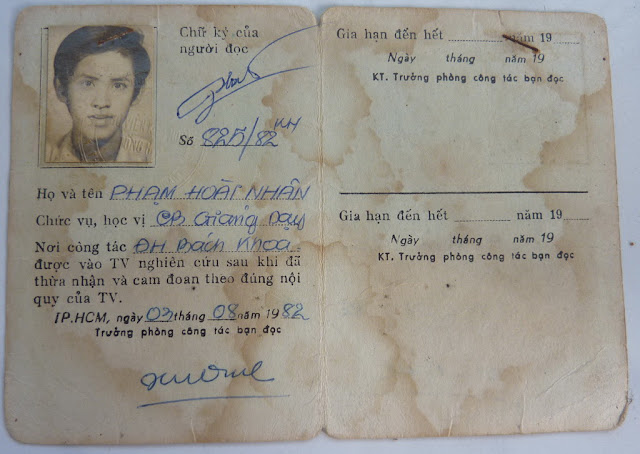 Chữ ký của
người đọc
Số 825/82 KH
Họ và tên PHẠM HOÀI NHÂN
Chức vụ, học vị CB Giảng Dạy
Nơi công tác ĐH Bách Khoa
được vào TV nghiên cứu sau khi đã
thừa nhận và cam đoan theo đúng nội
quy của TV.
TP.HCM, ngày 03 tháng 08 năm 1982
Trưởng phòng công tác bạn đọc
Gia hạn đến hết năm 19
Ngày tháng năm 19
KT. Trưởng phòng công tác bạn đọc
Gia hạn đến hết năm 19
Ngày tháng năm 19
KT. Trưởng phòng công tác bạn đọc